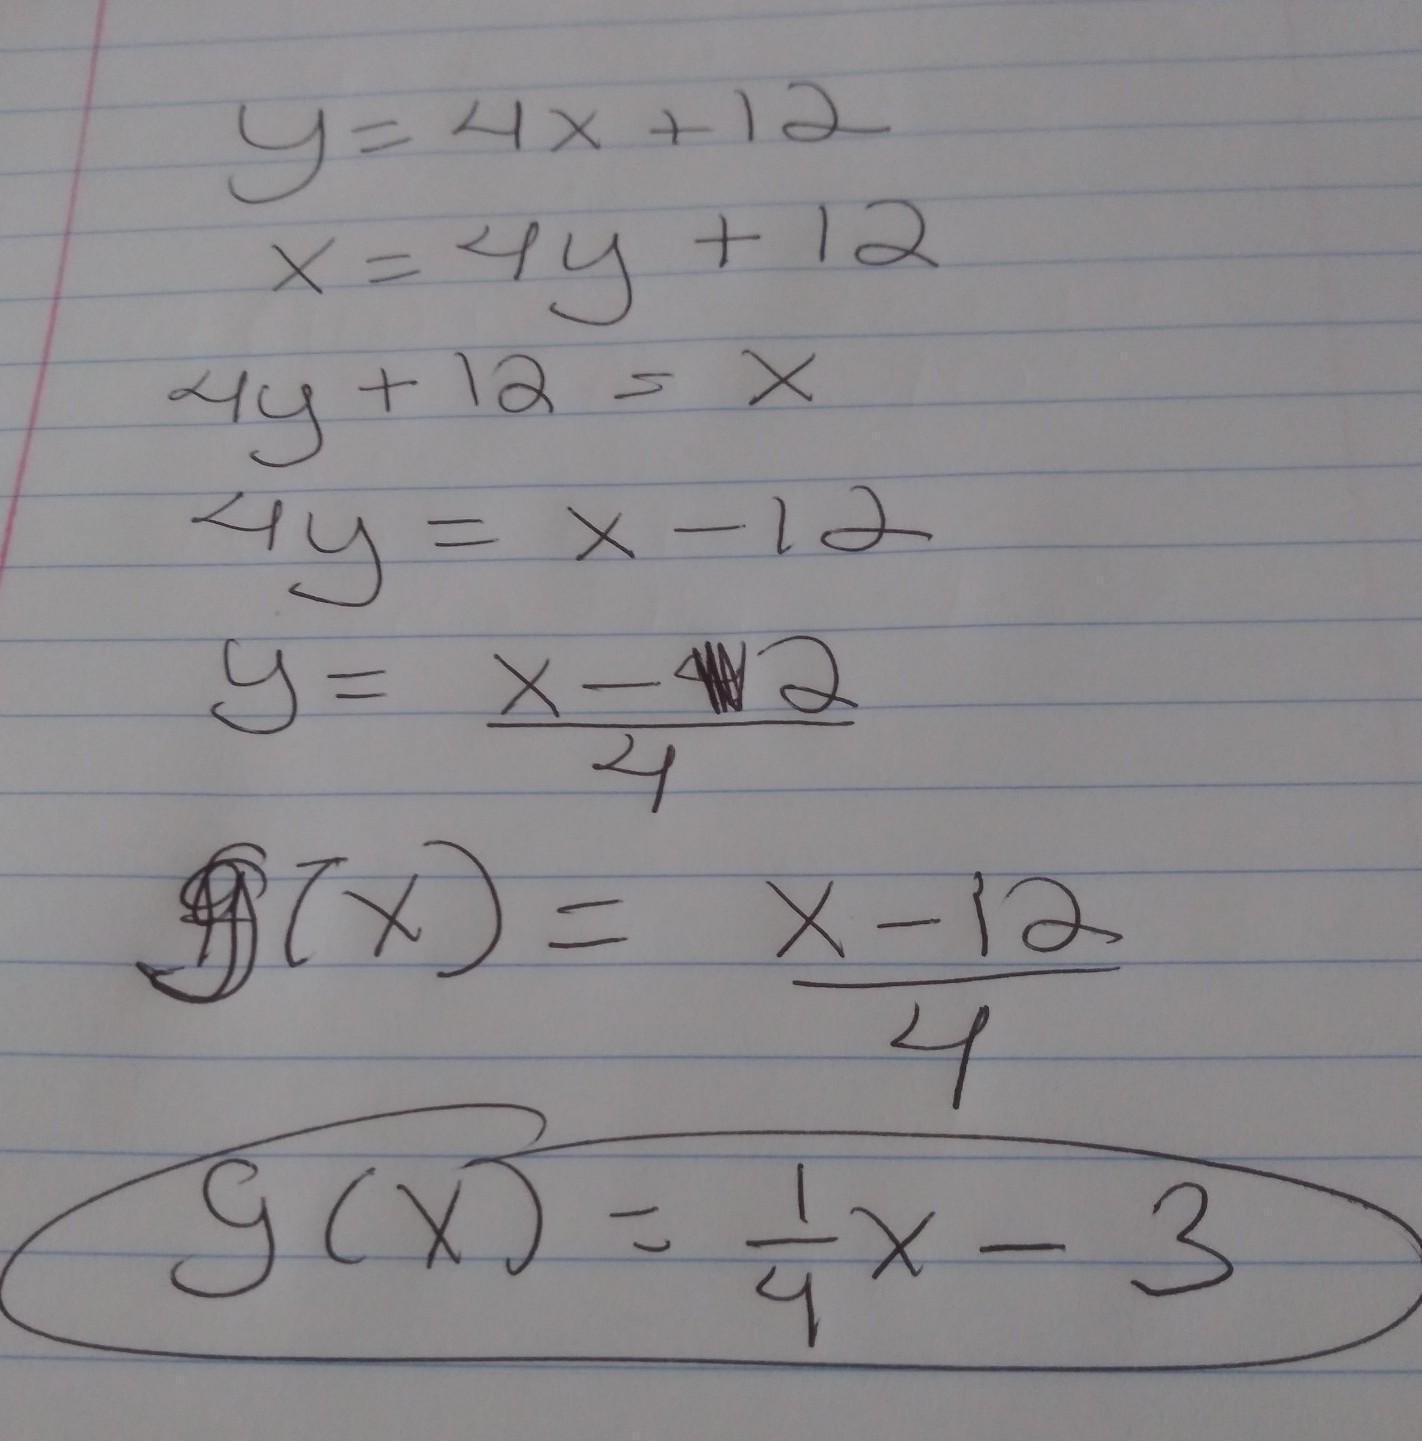 y = 4x + 12
x = 4y + 12
4y + 12 = x
4y = x - 12
y = x - 12
4
g(x) = x - 12
4
g(x) = 1/4 x - 3